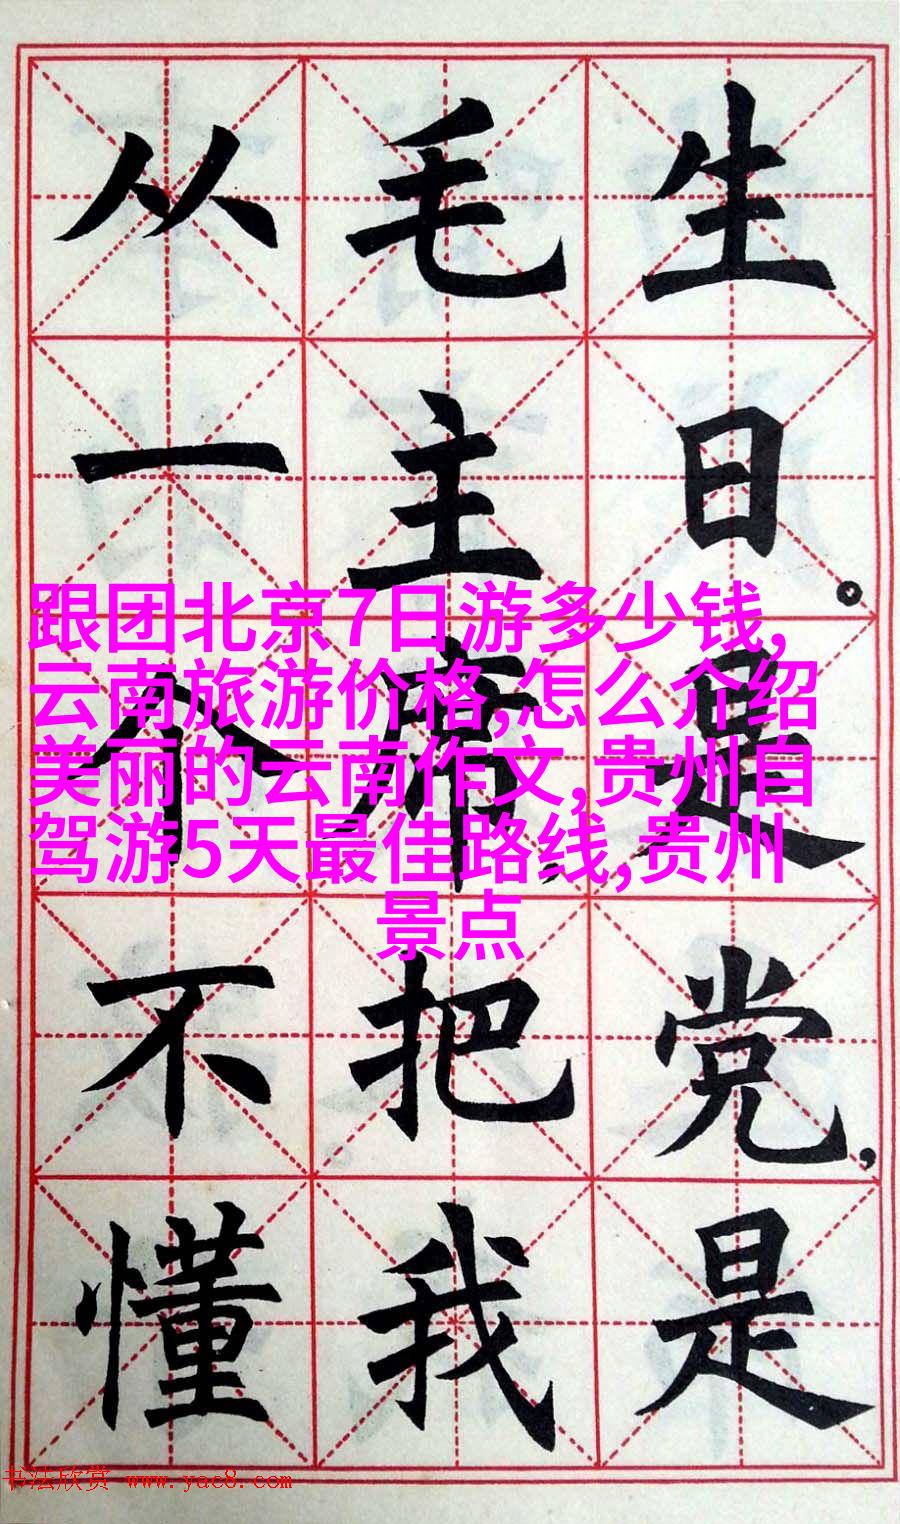 生日。是党,是
毛主席,把我
从一个不懂
跟团北京7日游多少钱,
云南旅游价格,怎么介绍
美丽的云南作文,贵州自
驾游5天最佳路线,贵州
景点
书法欣赏 www.yac8.com